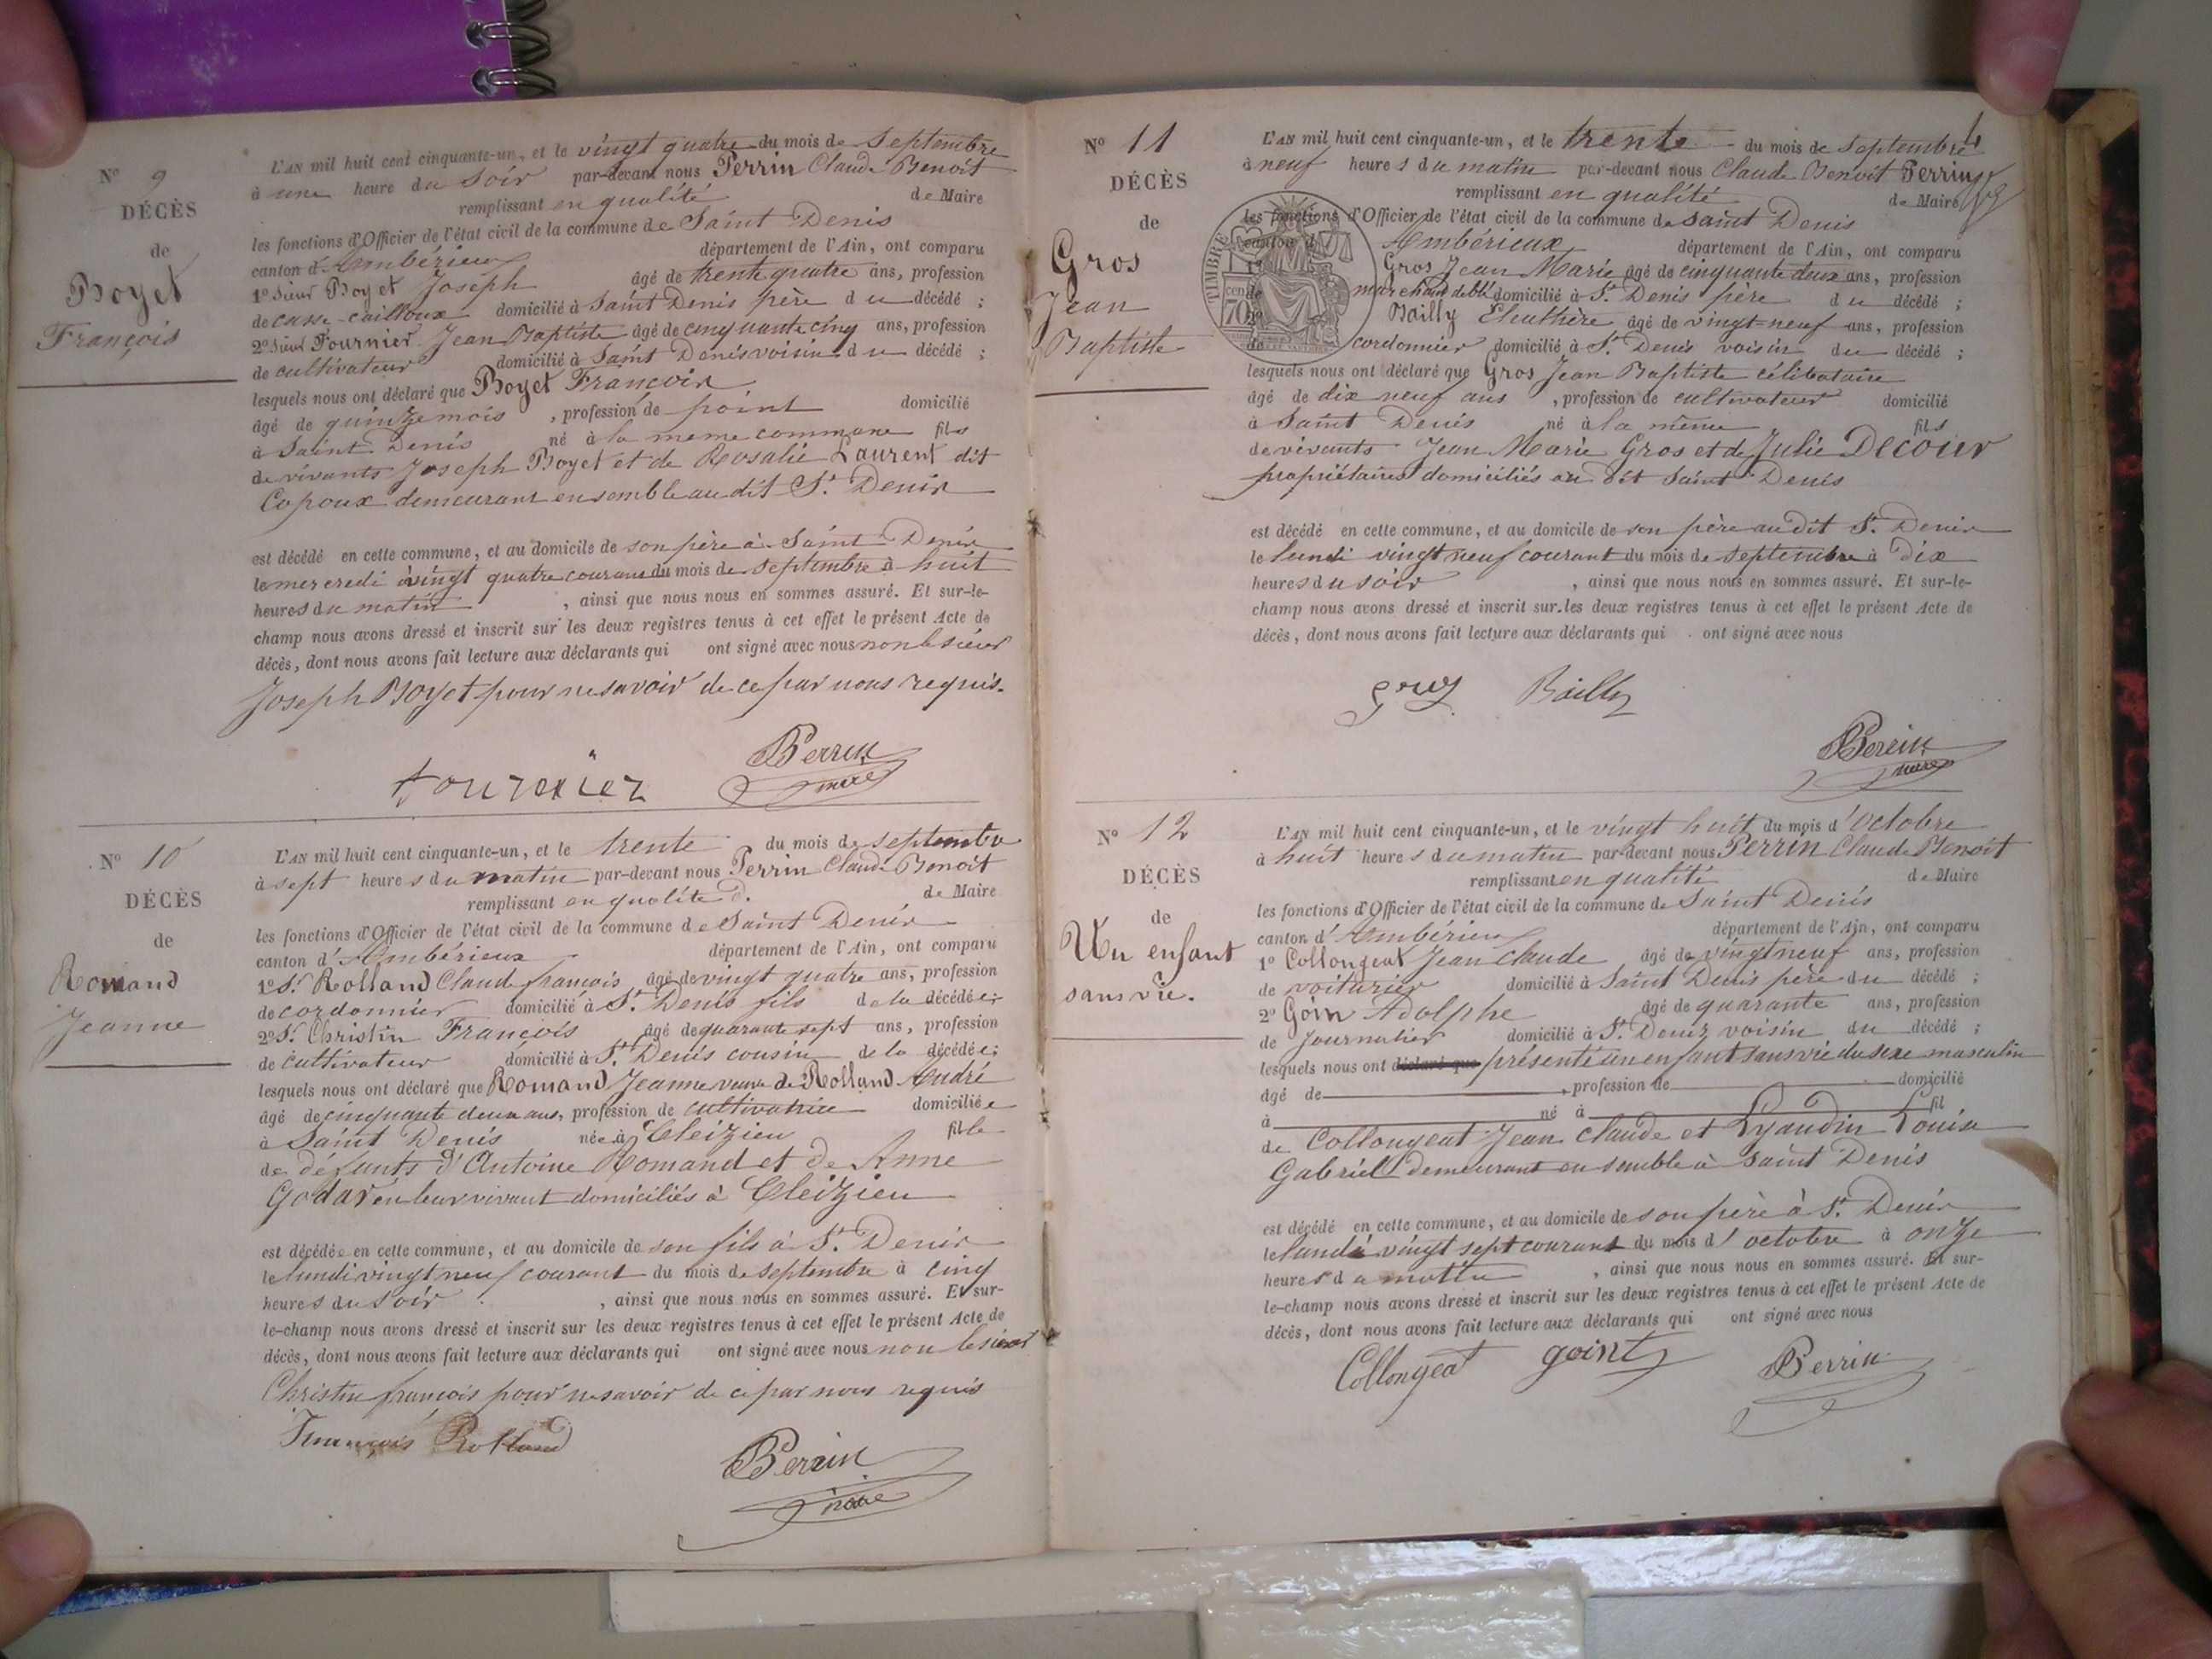 N° 9
DÉCÈS
de
Boyet
François
L'AN mil huit cent cinquante-un, et le vingt quatre du mois de Septembre
à une heure du Soir par-devant nous Perrin Claude Benoit
remplissant en qualité de Maire
les fonctions d'Officier de l'état civil de la commune de Saint Denis
canton d'Ambérieux département de l'Ain, ont comparu
1° Sieur Boyet Joseph âgé de trente quatre ans, profession
de casse-cailloux domicilié à Saint Denis père du décédé ;
2° Sieur Fournier Jean Baptiste âgé de cinquante cinq ans, profession
de cultivateur domicilié à Saint Denis voisin du décédé ;
lesquels nous ont déclaré que Boyet François
âgé de quinze mois , profession de point domicilié
à Saint Denis né à la meme commune fils
de vivants Joseph Boyet et de Rosalie Laurent dit
Copoux demeurant ensemble au dit St. Denis
est décédé en cette commune, et au domicile de son père à Saint Denis
le mercredi vingt quatre courant du mois de Septembre à huit
heures du matin , ainsi que nous nous en sommes assuré. Et sur-le-
champ nous avons dressé et inscrit sur les deux registres tenus à cet effet le présent Acte de
décès, dont nous avons fait lecture aux déclarants qui ont signé avec nous non le sieur
Joseph Boyet pour ne savoir de ce par nous requis.
fournier Perrin
maire
N° 10
DÉCÈS
de
Romand
Jeanne
L'AN mil huit cent cinquante-un, et le trente du mois de septembre
à sept heures du matin par-devant nous Perrin Claude Benoit
remplissant en qualité d. de Maire
les fonctions d'Officier de l'état civil de la commune de Saint Denis
canton d'Ambérieux département de l'Ain, ont comparu
1° Sr. Rolland Claude françois âgé de vingt quatre ans, profession
de cordonnier domicilié à St. Denis fils de la décédée ;
2° Sr. Christin François âgé de quarante sept ans, profession
de cultivateur domicilié à St. Denis cousin de la décédée ;
lesquels nous ont déclaré que Romand Jeanne veuve de Rolland André
âgé de cinquante deux ans, profession de cultivatrice domiciliée
à Saint Denis née à Cleizieu fille
de défunts d'Antoine Romand et de Anne
Godar en leur vivant domiciliés à Cleizieu
est décédée en cette commune, et au domicile de son fils à St. Denis
le lundi vingt neuf courant du mois de septembre à cinq
heures du soir , ainsi que nous nous en sommes assuré. Et sur-
le-champ nous avons dressé et inscrit sur les deux registres tenus à cet effet le présent Acte de
décès, dont nous avons fait lecture aux déclarants qui ont signé avec nous non le sieur
Christin françois pour ne savoir de ce par nous requis
François Rolland Perrin
maire
N° 11
DÉCÈS
de
Gros
Jean
Baptiste
L'AN mil huit cent cinquante-un, et le trente du mois de Septembre
à neuf heures du matin par-devant nous Claude Benoit Perrin
remplissant en qualité de Maire
les fonctions d'Officier de l'état civil de la commune de Saint Denis
canton d'Ambérieux département de l'Ain, ont comparu
1° Gros Jean Marie âgé de cinquante deux ans, profession
de marchand de blé domicilié à St. Denis père du décédé ;
2° Bailly Eleuthère âgé de vingt-neuf ans, profession
de cordonnier domicilié à St. Denis voisin du décédé ;
lesquels nous ont déclaré que Gros Jean Baptiste célibataire
âgé de dix neuf ans , profession de cultivateur domicilié
à Saint Denis né à la même fils
de vivants Jean Marie Gros et de Julie Decour
propriétaires domiciliés au dit Saint Denis
est décédé en cette commune, et au domicile de son père au dit St. Denis
le lundi vingt neuf courant du mois de septembre à dix
heures du soir , ainsi que nous nous en sommes assuré. Et sur-le-
champ nous avons dressé et inscrit sur les deux registres tenus à cet effet le présent Acte de
décès, dont nous avons fait lecture aux déclarants qui ont signé avec nous
Bailly
Perrin
maire
TIMBRE
70
N° 12
DÉCÈS
de
Un enfant
sans vie.
L'AN mil huit cent cinquante-un, et le vingt huit du mois d'Octobre
à huit heures du matin par-devant nous Perrin Claude Benoit
remplissant en qualité de Maire
les fonctions d'Officier de l'état civil de la commune de Saint Denis
canton d'Ambérieux département de l'Ain, ont comparu
1° Collongeat Jean Claude âgé de vingt neuf ans, profession
de voiturier domicilié à Saint Denis père du décédé ;
2° Goin Adolphe âgé de quarante ans, profession
de Journalier domicilié à St. Denis voisin du décédé ;
lesquels nous ont déclaré que présenté un enfant sans vie du sexe masculin
âgé de , profession de domicilié
à né à fil
de Collongeat Jean Claude et Lyaudin Louise
Gabriel demeurant ensemble à Saint Denis
est décédé en cette commune, et au domicile de son père à St. Denis
le lundi vingt sept courant du mois d'octobre à onze
heures du matin , ainsi que nous nous en sommes assuré. Et sur-
le-champ nous avons dressé et inscrit sur les deux registres tenus à cet effet le présent Acte de
décès, dont nous avons fait lecture aux déclarants qui ont signé avec nous
Collongeat goint Perrin